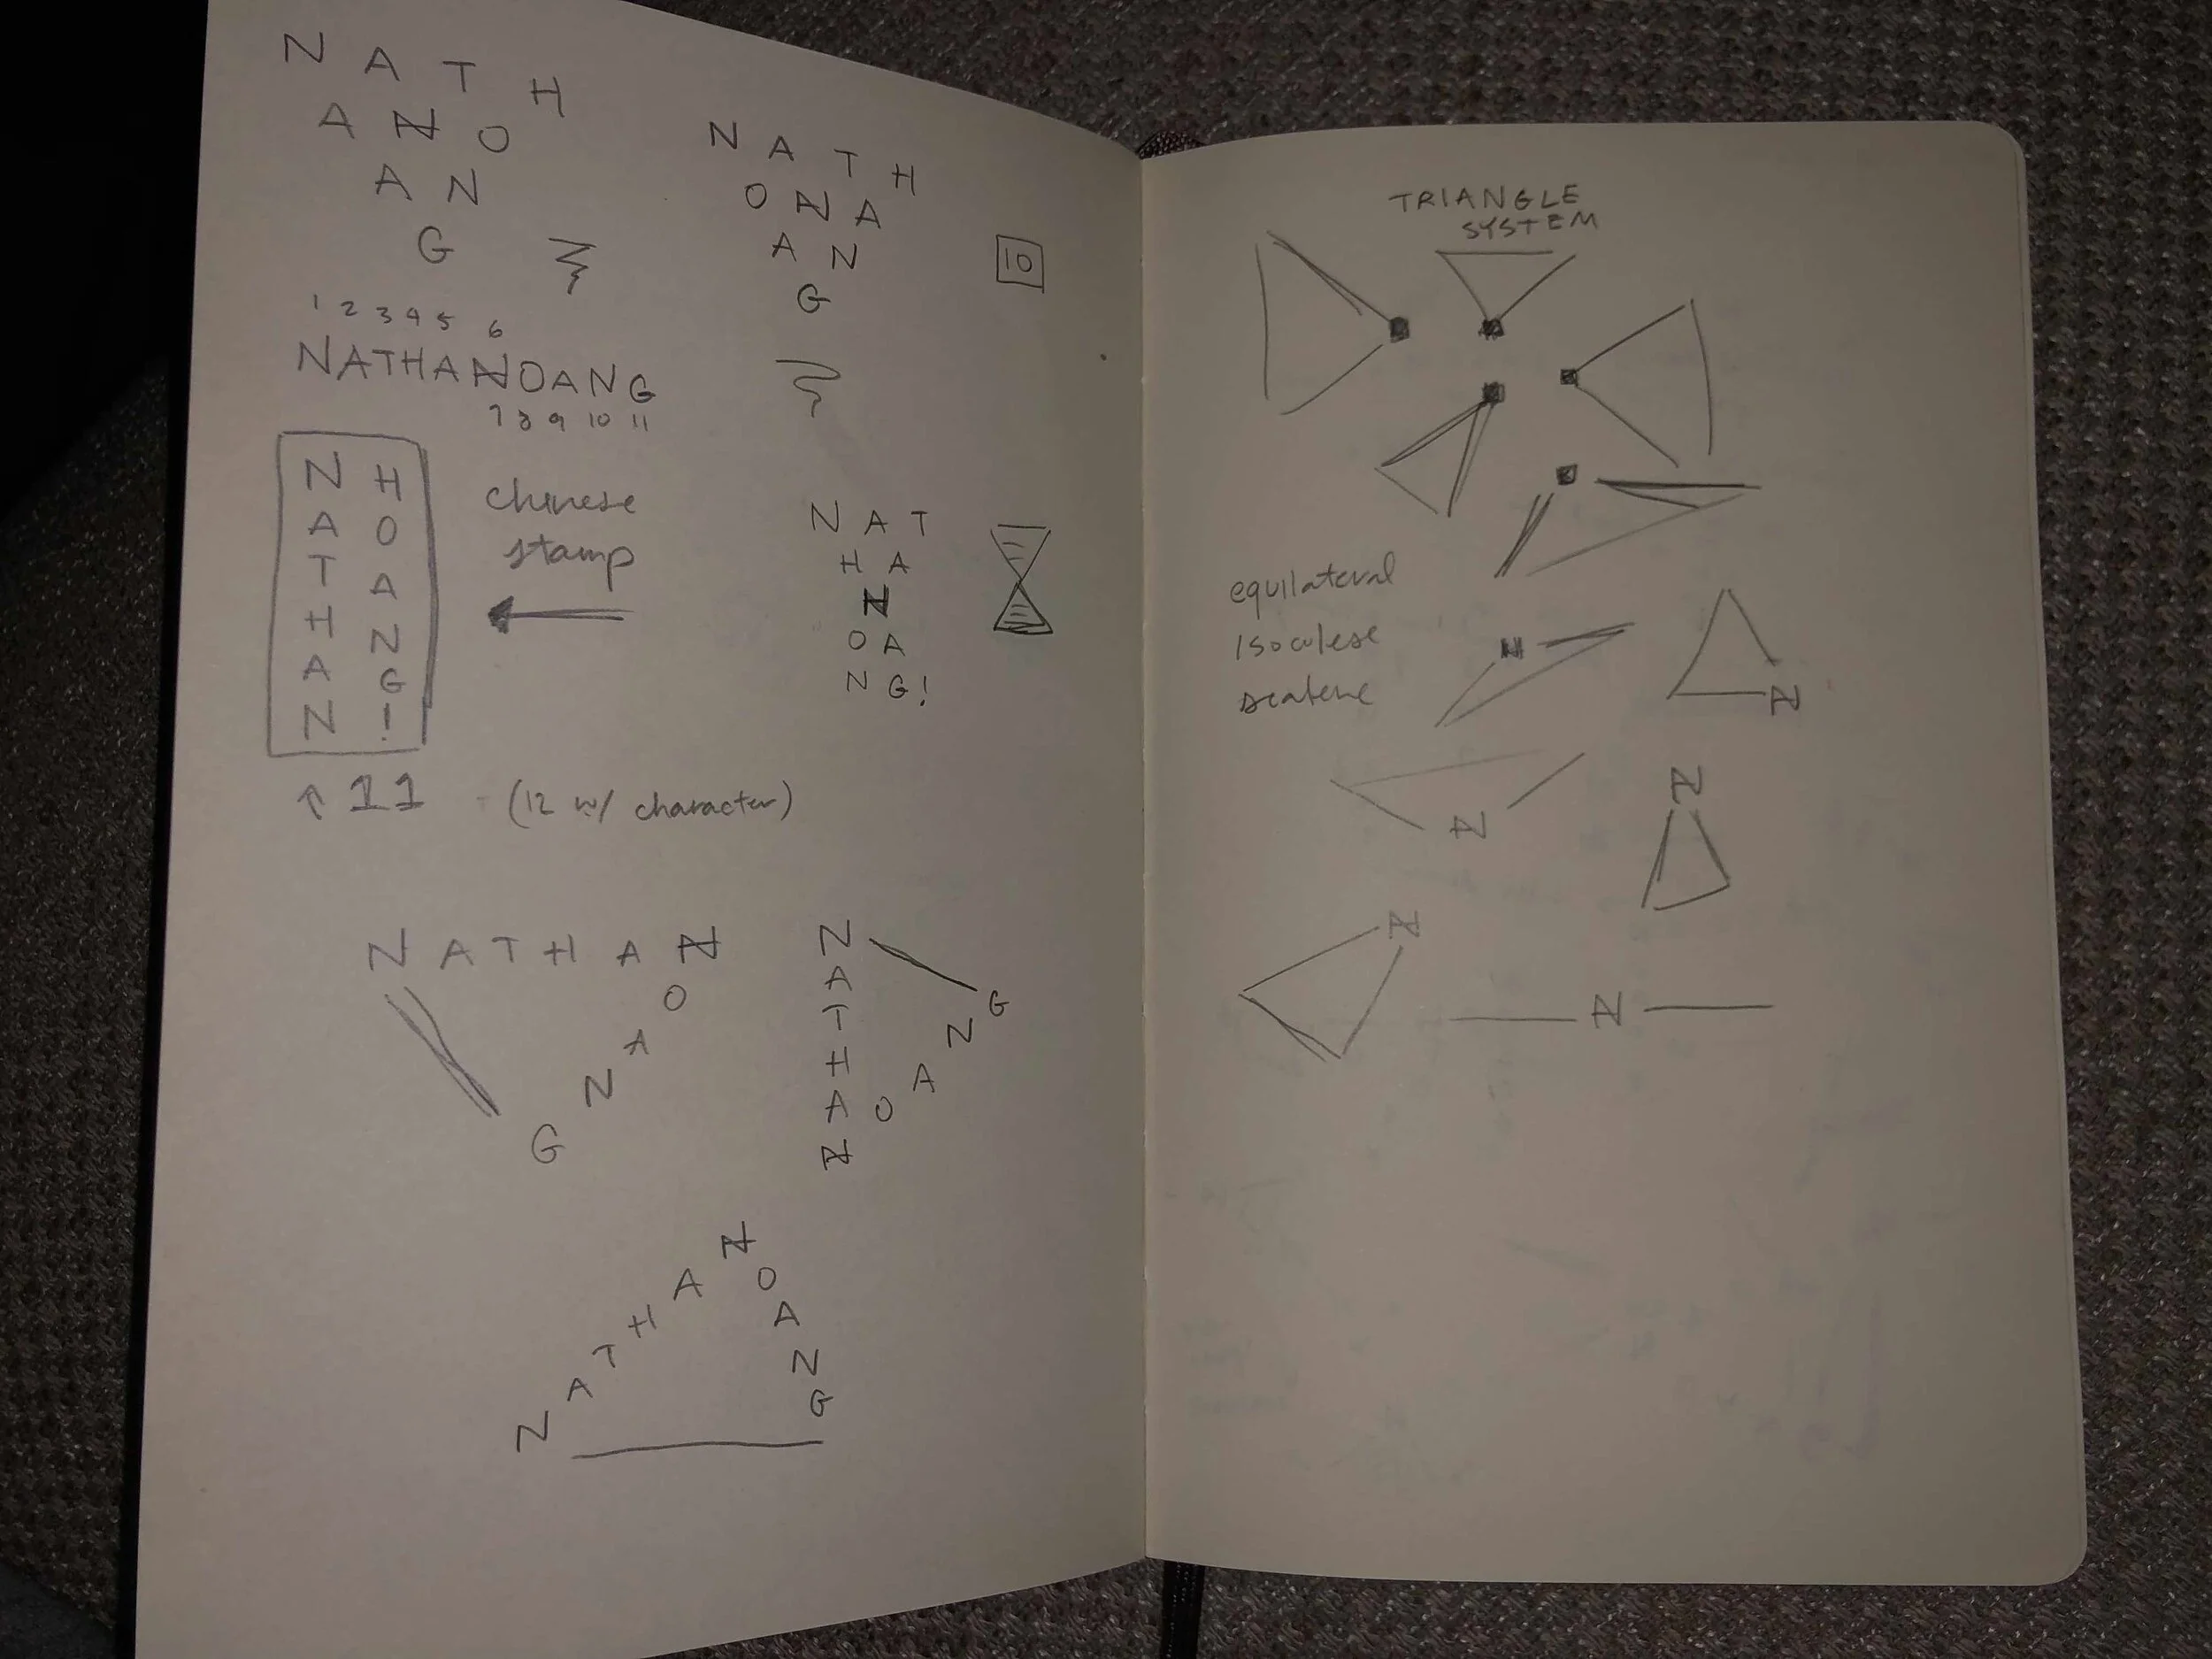 N A T H
A N O
A N
G
1 2 3 4 5 6
NATHANOANG
7 8 9 10 11
N H
A O
T A
H N
A G
N !
chinese
stamp
↑ 11 - (12 w/ character)
N A T H
O N A
A N
G
10
N A T
H A
N
O A
N G!
N A T H A N
O
A
N
G
N
A
T
H
A
N
O
A
N
G
N
A
T
H
A
N
O
A
N
G
TRIANGLE
SYSTEM
equilateral
isoculese
scalene
N
N
N
N
N
N